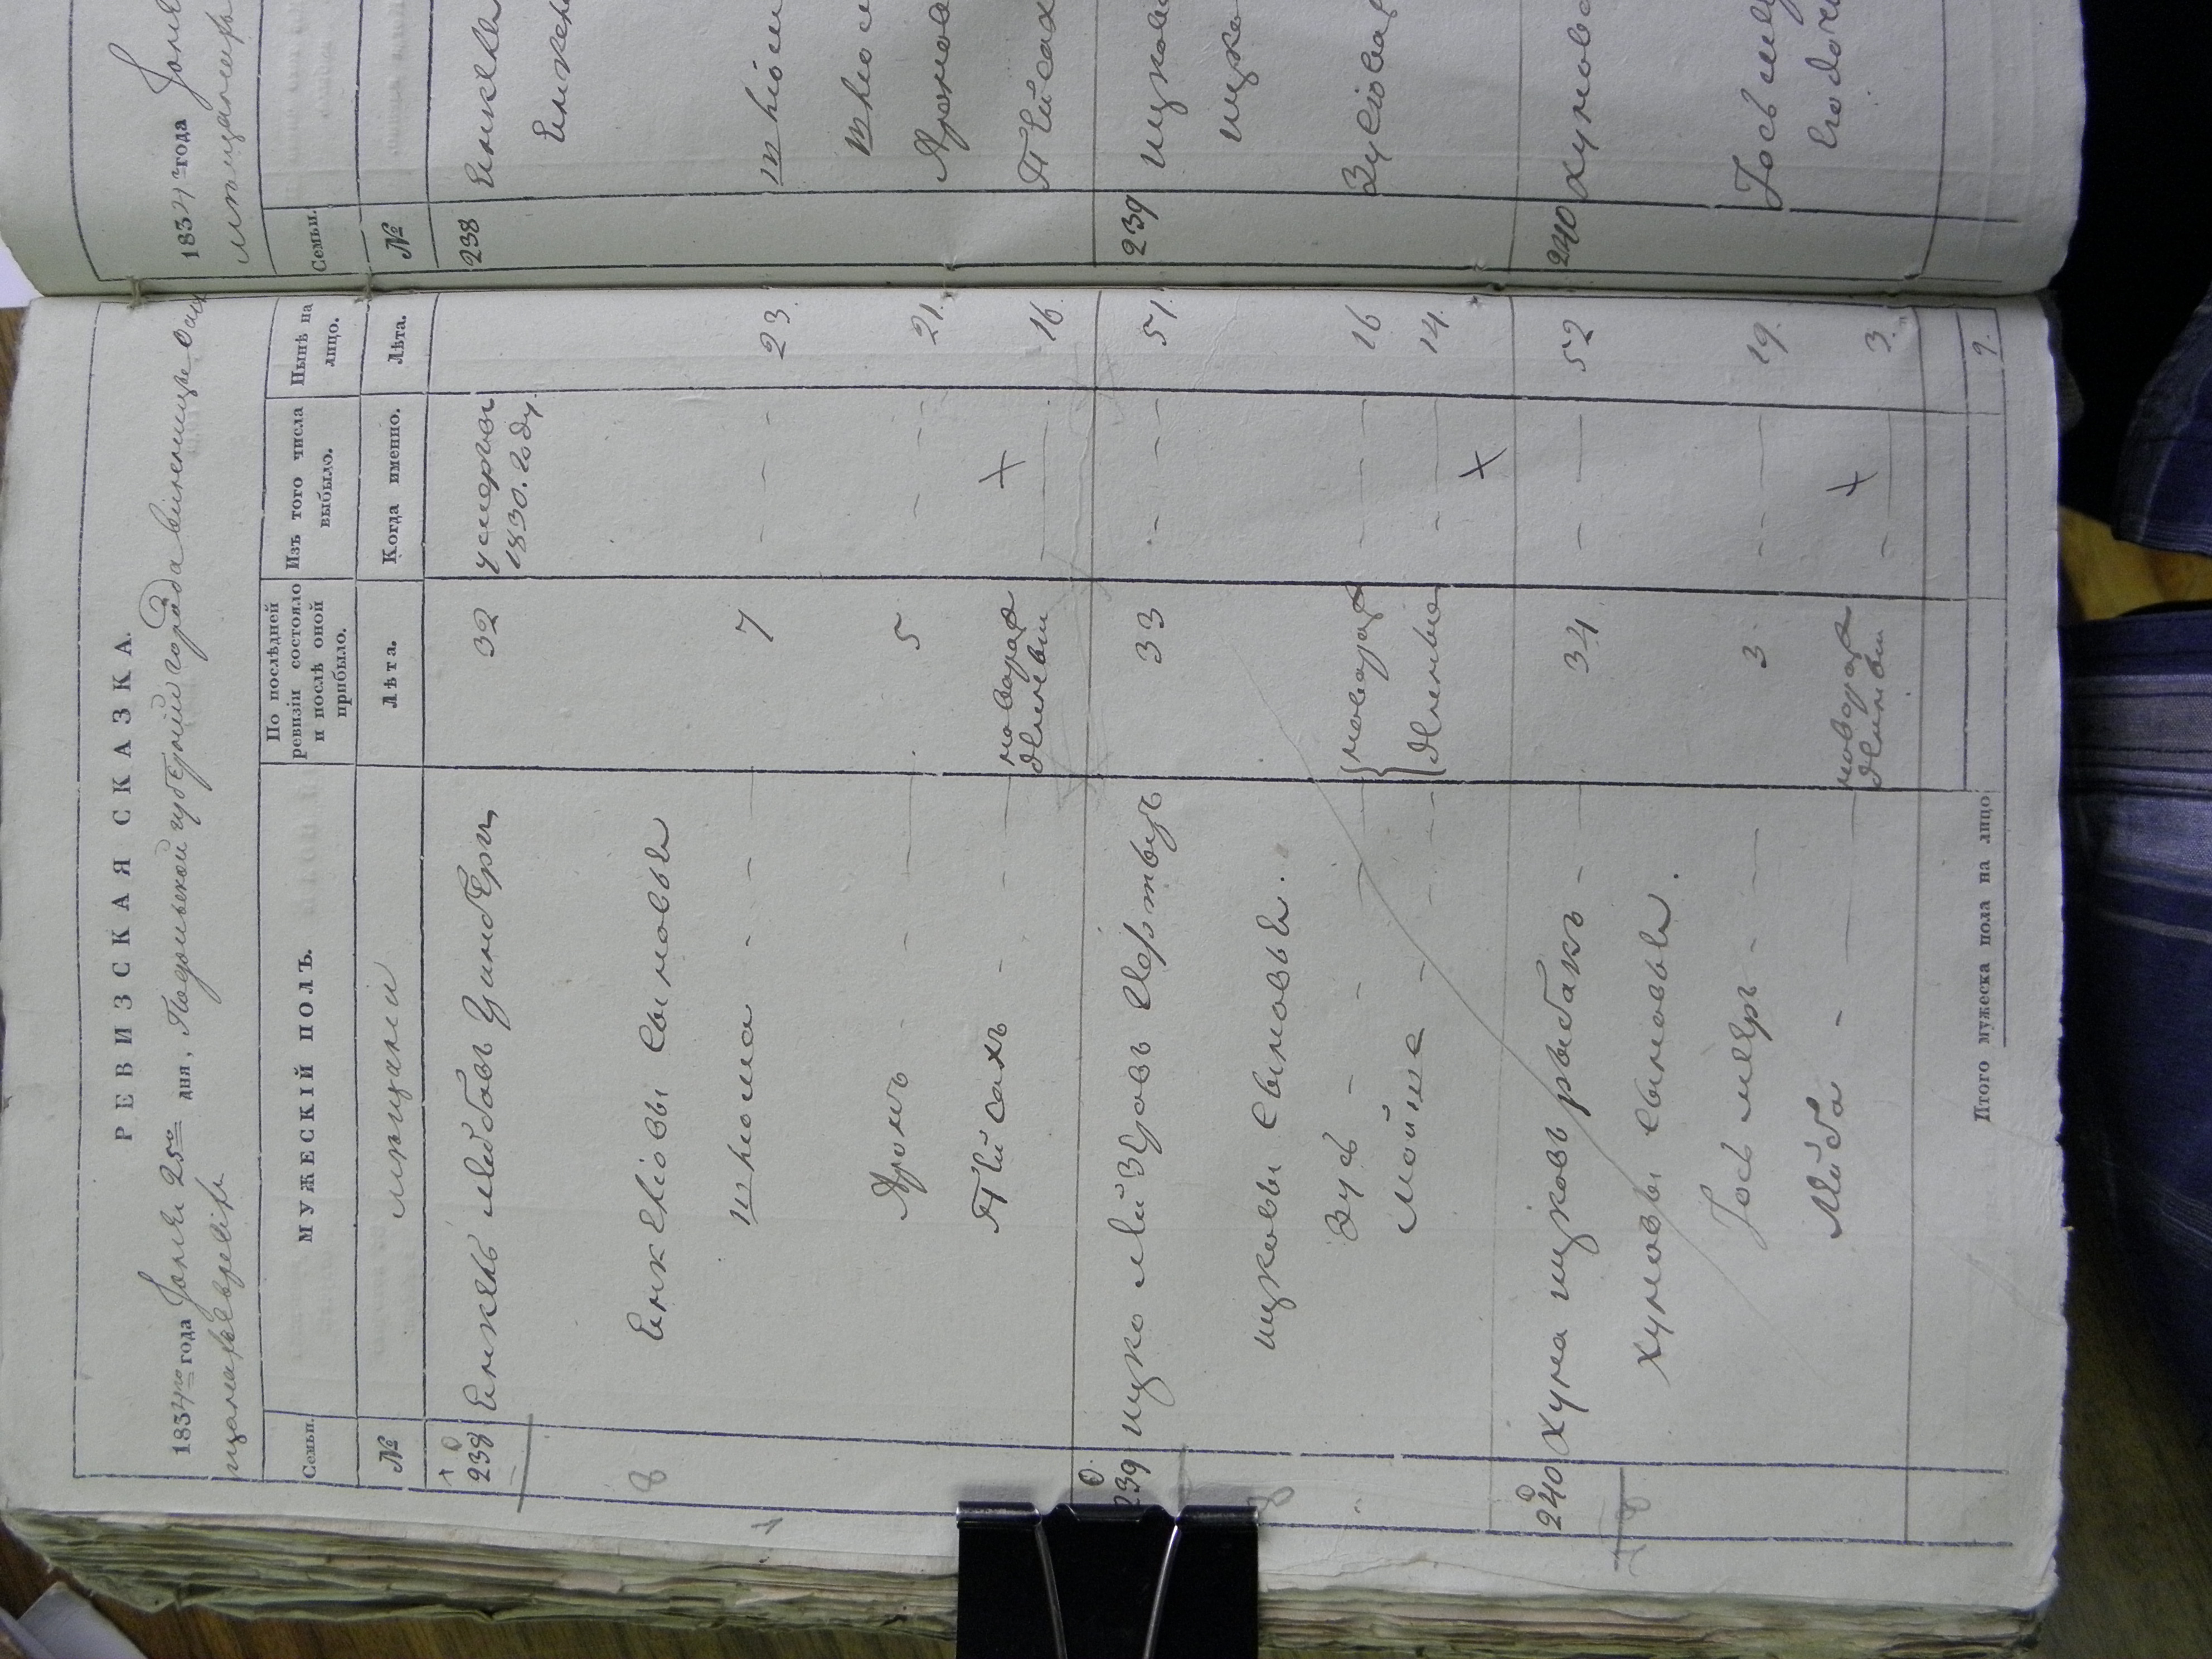 РЕВИЗСКАЯ СКАЗКА.
1834го года Іюня 25го дня, Подольской губерніи города винницы
мѣщанъ евреевъ
Семьи. МУЖЕСКІЙ ПОЛЪ. По послѣдней ревизіи состояло и послѣ оной прибыло. Изъ того числа выбыло. Нынѣ на лицо.
№ мѣщане Лѣта. Когда именно. Лѣта.
238 Енкель Лейбовъ Цинберг 32 умеръ
1830. году.
Енкелiовы сыновья
Шлiома - - 7 - - - 23.
Аронъ - - 5 - - - 21.
Пейсахъ - - новорож
денный 16.
239 Ицко Лейзеровъ 33 - - - 51.
Ицковы сыновья.
Зусь - - новорож - - - 16
Мойше - - денные - - 14.
240 Хуна Ицковъ рыбакъ - 34 - - 52
Хуновы сыновья.
Іось меер - - 3 - - - 19.
Лейба - новорож
денный - 3.
Итого мужеска пола на лицо 9.
1834го года Іюня
мѣщанъ
Семьи.
№
238 Енкел
Енкел
Шлiом
Шлiом
Аронов
Пейсах
239 Ицков
Ицко
Зусiова
240 Хунов
Іось мее
Его доч